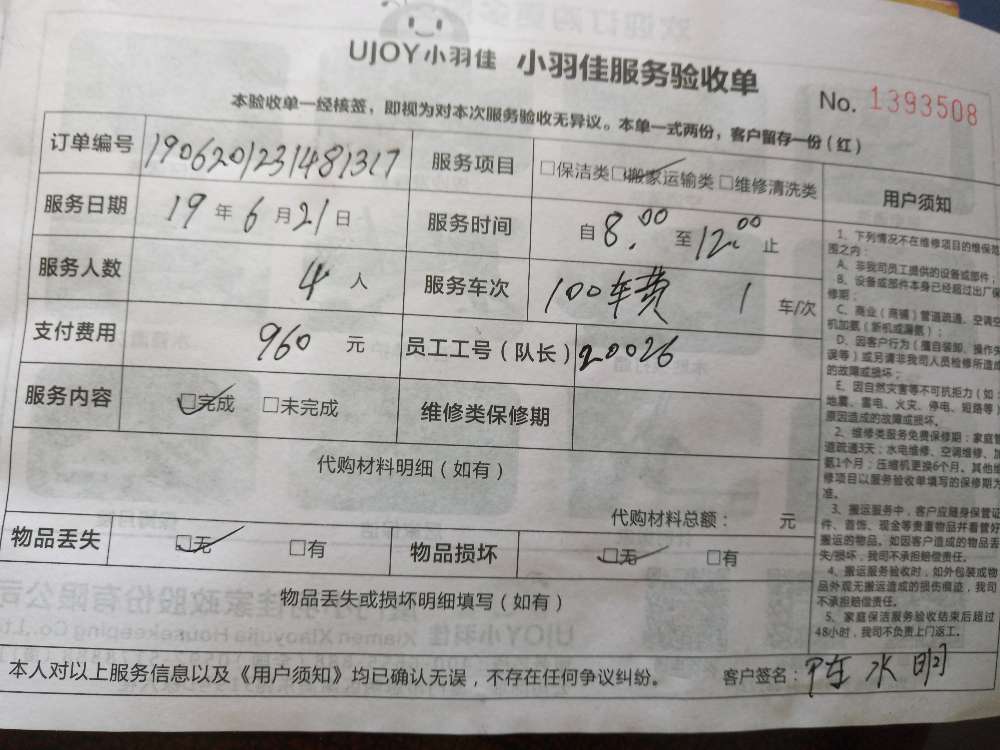 UJOY小羽佳 小羽佳服务验收单
No. 1393508
本验收单一经核签，即视为对本次服务验收无异议。本单一式两份，客户留存一份（红）
订单编号 1906201231481317 服务项目 □保洁类□搬家运输类□维修清洗类
服务日期 19年6月21日 服务时间 自8.00至12.00止
服务人数 4人 服务车次 100车费 1 车/次
支付费用 960元 员工工号（队长）20026
服务内容 □完成 □未完成 维修类保修期
代购材料明细（如有）
代购材料总额： 元
物品丢失 □无 □有 物品损坏 □无 □有
物品丢失或损坏明细填写（如有）
本人对以上服务信息以及《用户须知》均已确认无误，不存在任何争议纠纷。 客户签名：陈水明
用户须知
1、下列情况不在维修项目的维保范
围之内：
A、非我司员工提供的设备或部件；
B、设备或部件本身已经超过出厂保
修期；
C、商业（商铺）管道疏通、空调空
机加氨（新机或漏氨）；
D、因客户行为（擅自装卸、操作失
误等）或另请非我司人员检修所造成
的故障或损坏；
E、因自然灾害等不可抗拒力（如：
地震、雷电、火灾、停电、短路等）
原因造成的故障或损坏。
2、维修类服务免费保修期：家庭管
道疏通3天；水电维修、空调维修、加
氨1个月；压缩机更换6个月。其他维
修项目以服务验收单填写的保修期为
准。
3、搬运服务中，客户应随身保管证
件、首饰、现金等贵重物品并看管好
搬运的物品。如因客户造成的物品丢
失/损坏，我司不承担赔偿责任。
4、搬运服务验收时，如外包装或物
品外观无搬运造成的损伤痕迹，我司
不承担赔偿责任。
5、家庭保洁服务验收结束后超过
48小时，我司不负责上门返工。